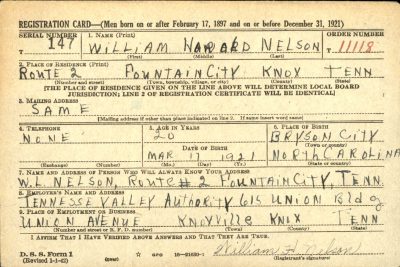 REGISTRATION CARD—(Men born on or after February 17, 1897 and on or before December 31, 1921)
SERIAL NUMBER 1. NAME (Print) ORDER NUMBER
T 147 WILLIAM HAROARD NELSON 11118
(First) (Middle) (Last)
2. PLACE OF RESIDENCE (Print)
ROUTE 2 FOUNTAIN CITY KNOX TENN
(Number and street) (Town, township, village, or city) (County) (State)
[THE PLACE OF RESIDENCE GIVEN ON THE LINE ABOVE WILL DETERMINE LOCAL BOARD
JURISDICTION; LINE 2 OF REGISTRATION CERTIFICATE WILL BE IDENTICAL]
3. MAILING ADDRESS
SAME
[Mailing address if other than place indicated on line 2. If same insert word same]
4. TELEPHONE 5. AGE IN YEARS 6. PLACE OF BIRTH
NONE 20 BRYSON CITY
DATE OF BIRTH (Town or county)
MAR 11 1921 NORTH CAROLINA
(Exchange) (Number) (Mo.) (Day) (Yr.) (State or country)
7. NAME AND ADDRESS OF PERSON WHO WILL ALWAYS KNOW YOUR ADDRESS
W.L. NELSON, ROUTE #2 FOUNTAIN CITY, TENN.
8. EMPLOYER'S NAME AND ADDRESS
TENNESSE VALLEY AUTHORITY 615 UNION BLDG
9. PLACE OF EMPLOYMENT OR BUSINESS
UNION AVENUE KNOXVILLE KNOX TENN
(Number and street or R. F. D. number) (Town) (County) (State)
I AFFIRM THAT I HAVE VERIFIED ABOVE ANSWERS AND THAT THEY ARE TRUE.
D. S. S. Form 1 GPO 16—21630-1 William H. Nelson
(Revised 1-1-42) (Registrant's signature)